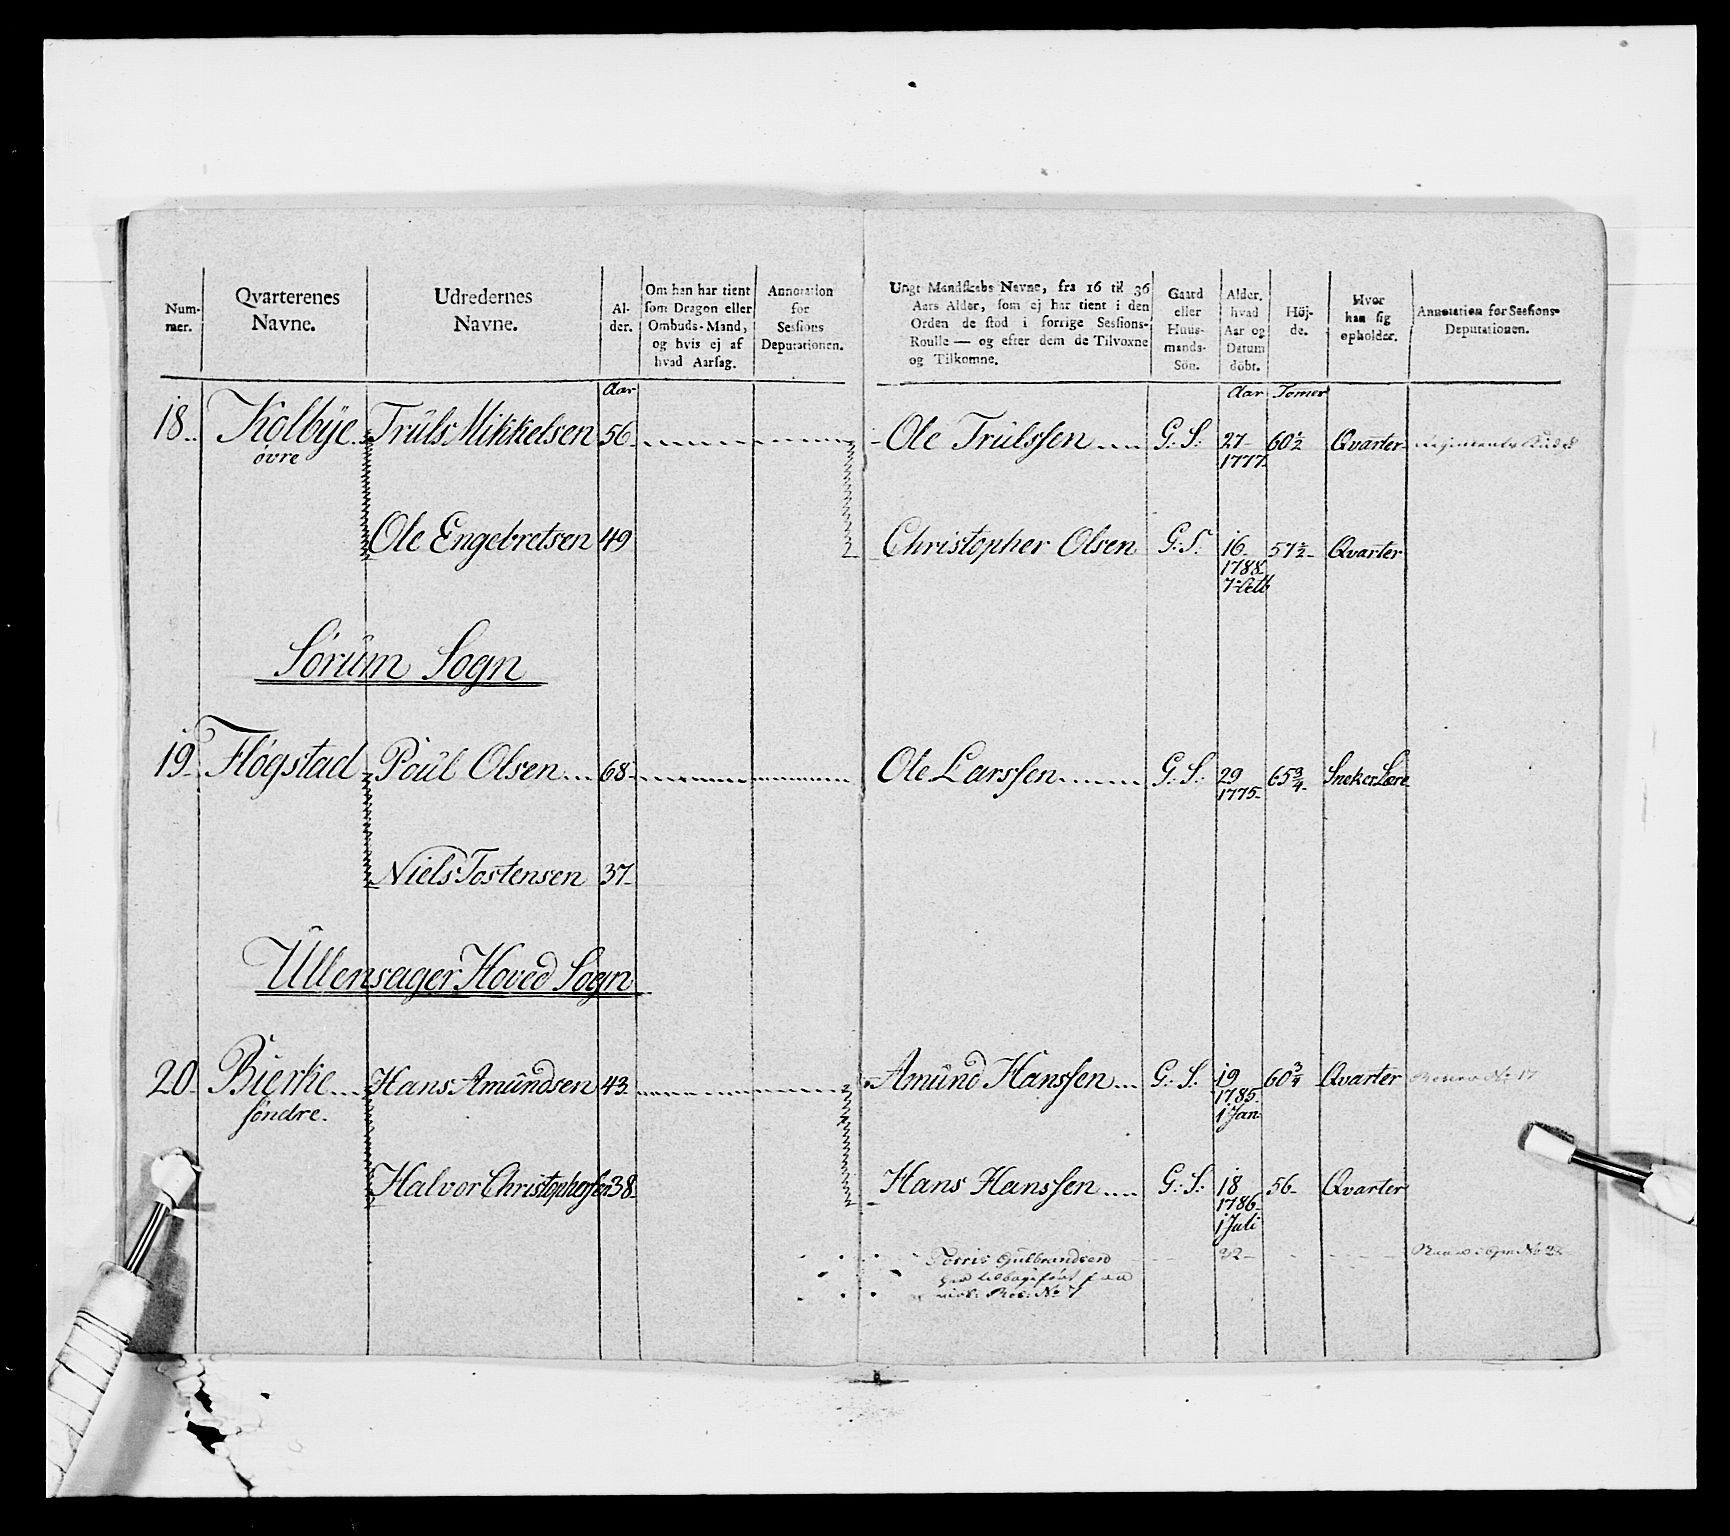 Num-
mer.
Qvarterenes
Navne.
Udredernes
Navne.
Al-
der.
Om han har tient
som Dragon eller
Ombuds-Mand,
og hvis ej af
hvad Aarsag.
Annotation
for
Sessions
Deputationen.
Ungt Mandskabs Navne, fra 16 til 36
Aars Alder, som ej har tient i den
Orden de stod i forrige Sessions-
Roulle — og efter dem de Tilvoxne
og Tilkomne.
Gaard
eller
Huus-
mands-
Sön.
Alder,
hvad
Aar og
Datum
döbt.
Höj-
de.
Hvor
han sig
opholder.
Annotation for Sessions-
Deputationen.
Aar
Aar Tomer
18. Kolbÿe Trüls Mikkelsen 56 Ole Trülssen G: S: 27 60½ Qvarter
øvre 1777
Ole Engebretsen 49 Christopher Olsen G: S: 16 57½ Qvarter
1788
7 Octb
Sørüm Sogn
19 Fløgstad Poül Olsen 68 Ole Larssen G: S: 29 65¾ Sneker Lære
1775
Niels Tostensen 37
Ullensager Hoved Sogn
20 Bierke Hans Amündsen 43 Amünd Hanssen G: S: 19 60¾ Qvarter No 17
søndre 1785
1 Jan
Halvor Christophersen 38 Hans Hanssen G: S: 18 56 Qvarter
1786
1 Juli
Gulbrandsen 32
No 7